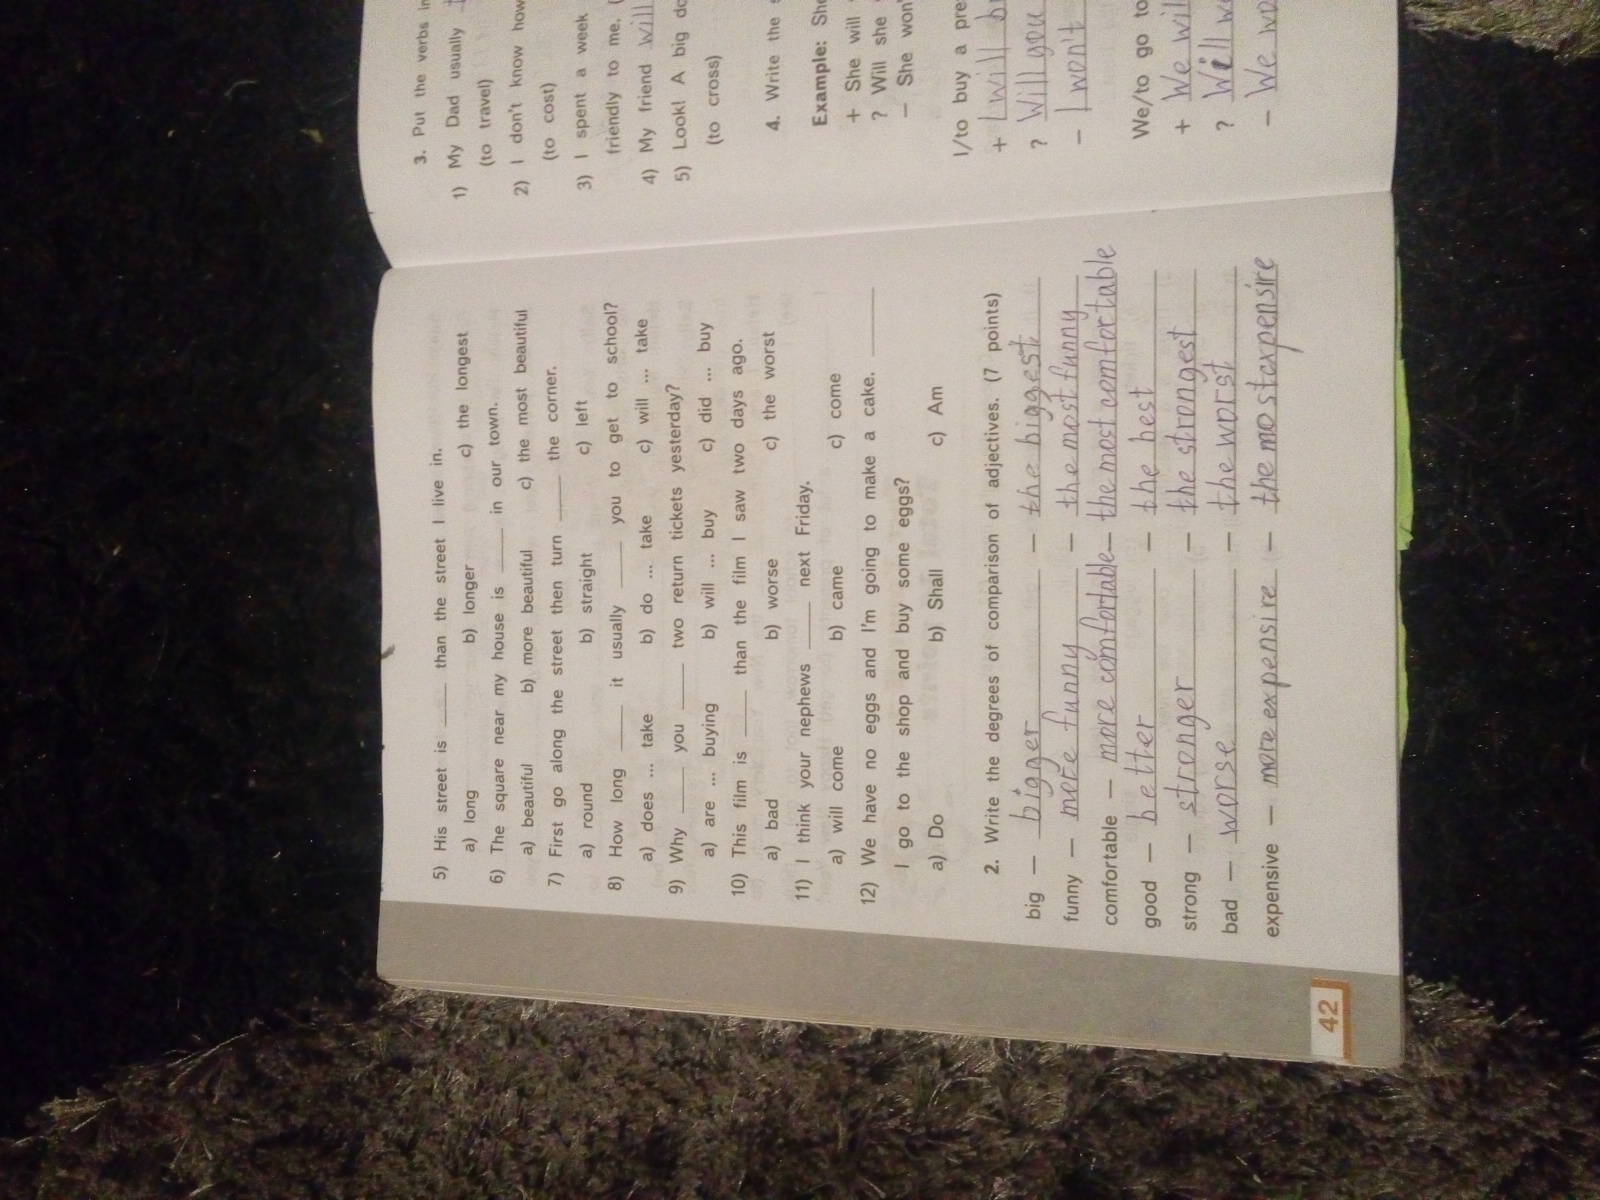 5) His street is ____ than the street I live in.
a) long b) longer c) the longest
6) The square near my house is ____ in our town.
a) beautiful b) more beautiful c) the most beautiful
7) First go along the street then turn ____ the corner.
a) round b) straight c) left
8) How long ____ it usually ____ you to get to school?
a) does ... take b) do ... take c) will ... take
9) Why ____ you ____ two return tickets yesterday?
a) are ... buying b) will ... buy c) did ... buy
10) This film is ____ than the film I saw two days ago.
a) bad b) worse c) the worst
11) I think your nephews ____ next Friday.
a) will come b) came c) come
12) We have no eggs and I'm going to make a cake. ____
I go to the shop and buy some eggs?
a) Do b) Shall c) Am
2. Write the degrees of comparison of adjectives. (7 points)
big — bigger — the biggest
funny — more funny — the most funny
comfortable — more comfortable — the most comfortable
good — better — the best
strong — stronger — the strongest
bad — worse — the worst
expensive — more expensire — the most axpensire
42
3. Put the verbs in
1) My Dad usually
(to travel)
2) I don't know how
(to cost)
3) I spent a week
friendly to me. (
4) My friend will
5) Look! A big do
(to cross)
4. Write the s
Example: She
+ She will
? Will she
– She won'
I/to buy a pre
+ I will b
? Will you
– I won't
We/to go to
+ We wil
? Will we
– We wo